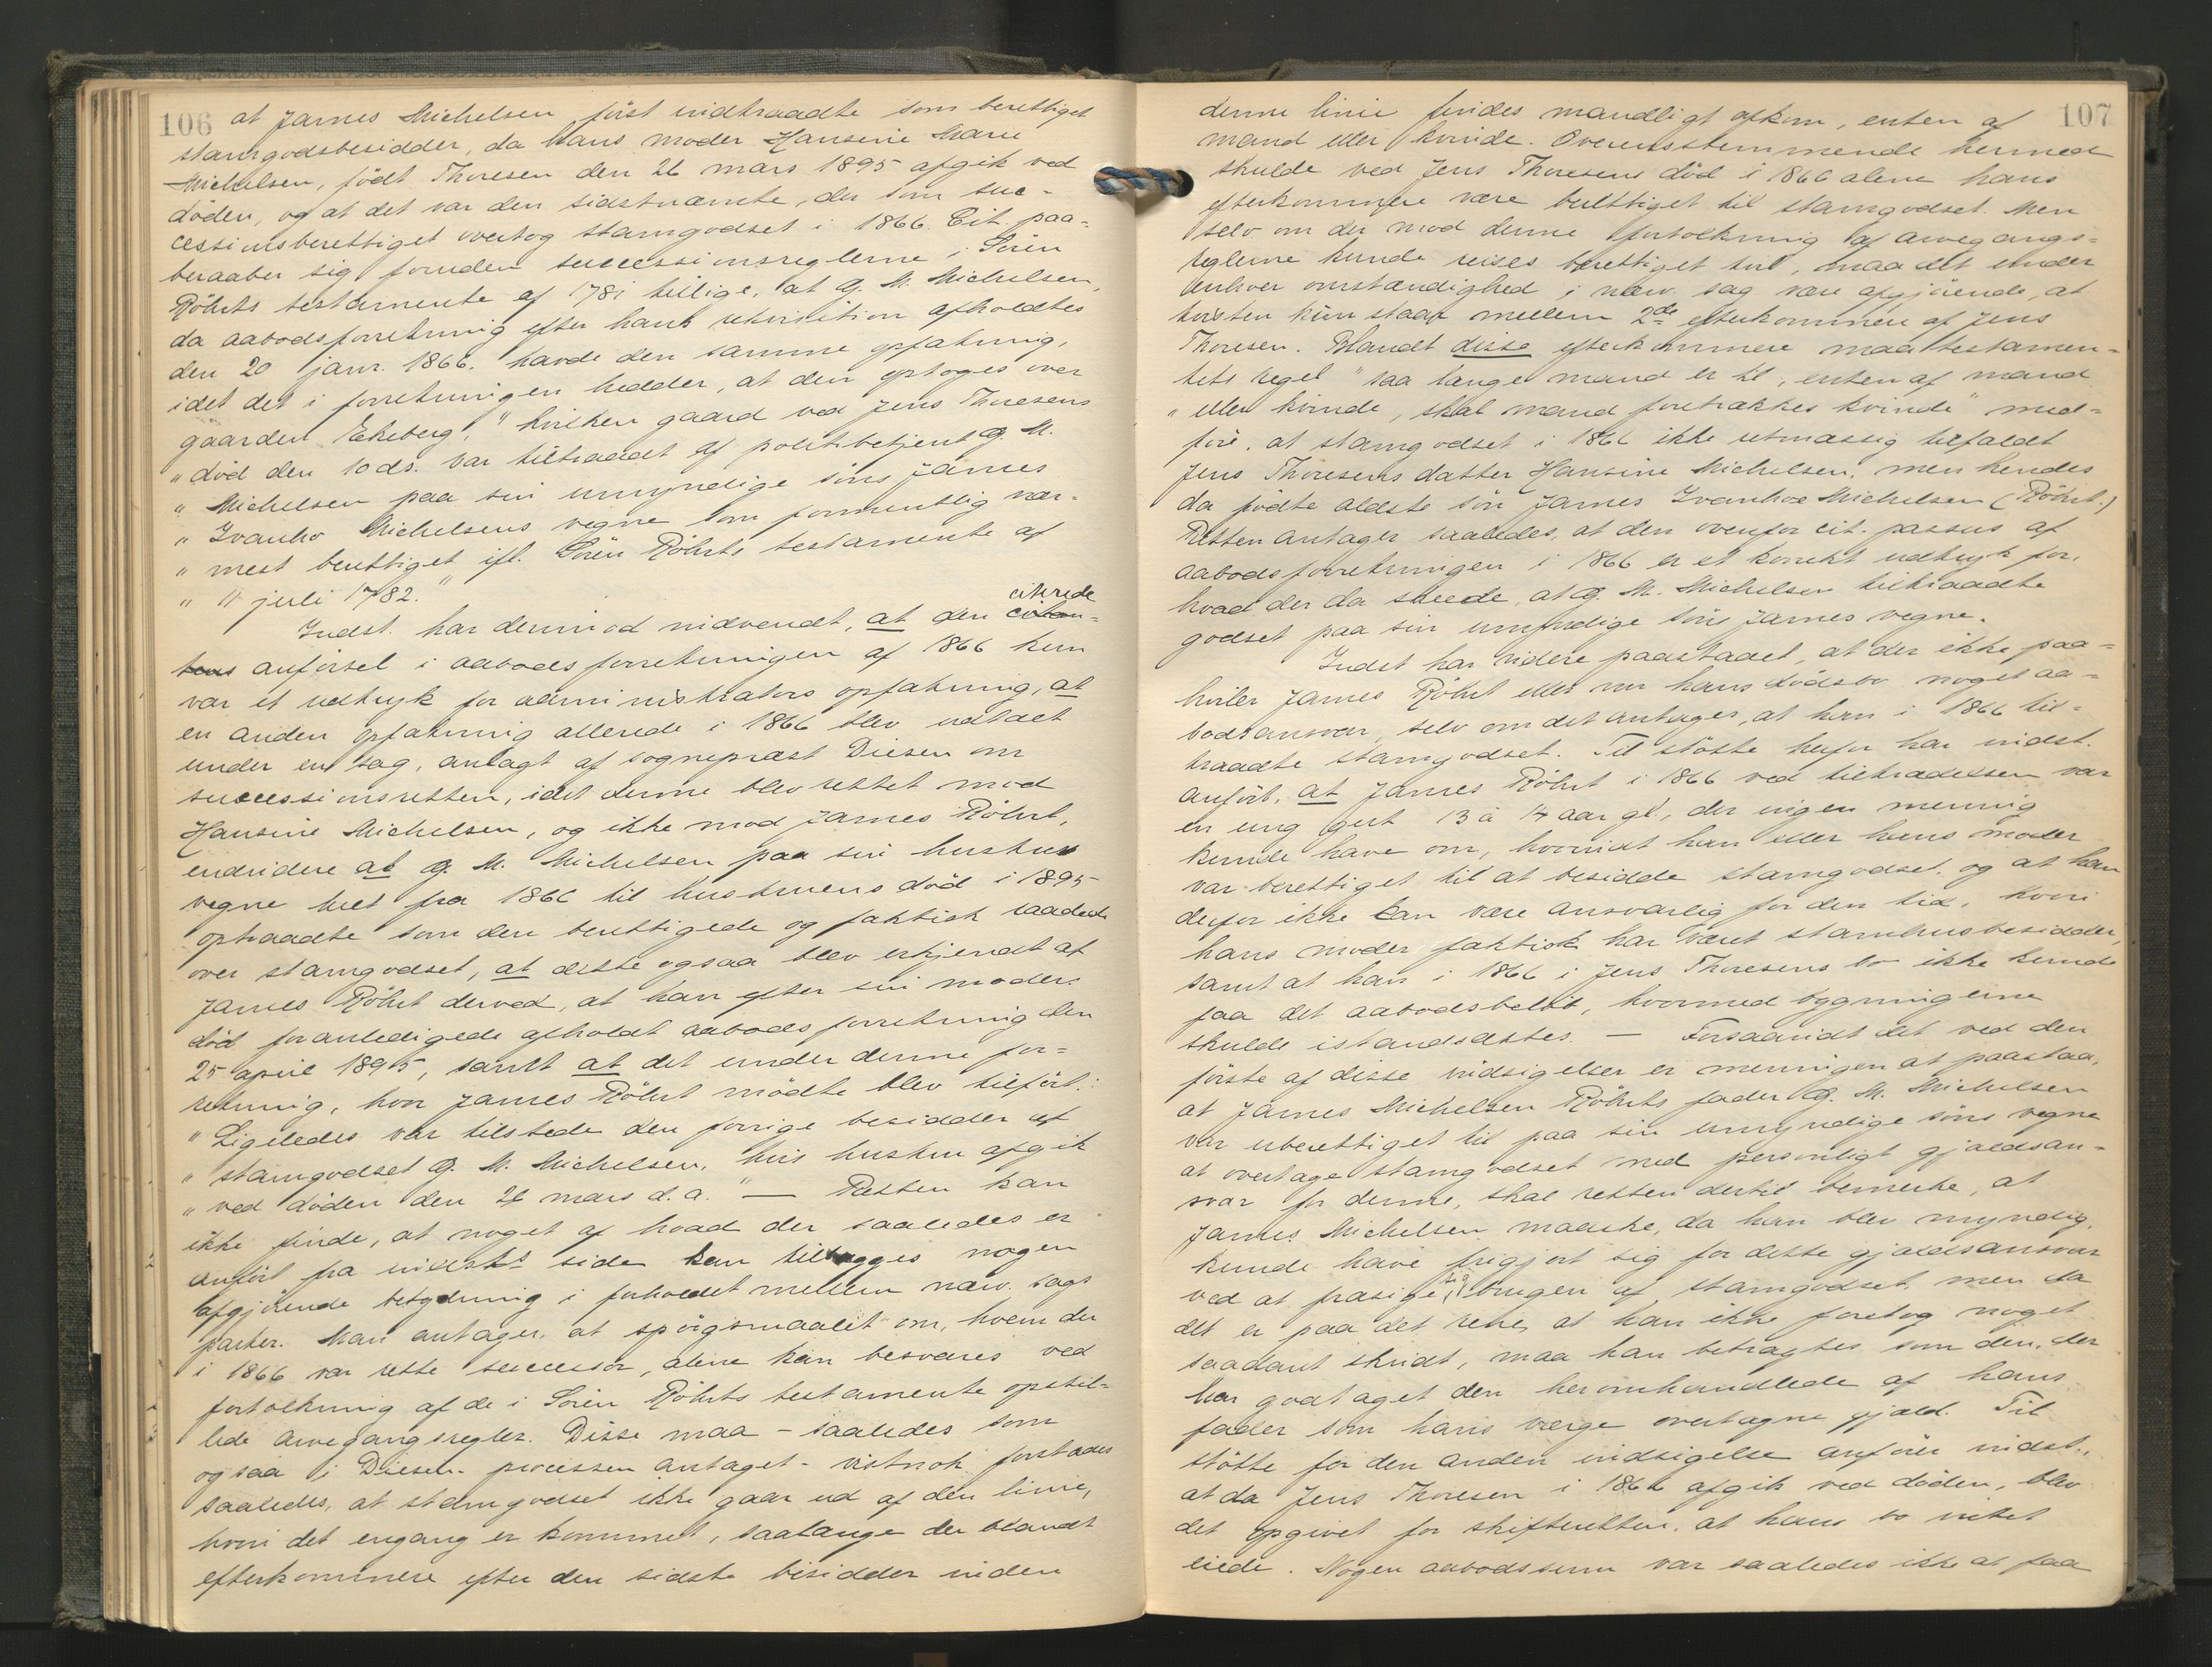 106
at James Michelsen först indtraadte som berettiget
stamgodsbesidder, da hans moder Hansine Marie
Michelsen, födt Thoresen den 26 mars 1895 afgik ved
döden, og at det var den sidstnævnte, der som suc-
cessionsberettiget overtog stamgodset i 1866. Cit. paa-
beraaber sig foruden successionsreglerne i Sörin
Röhrts testamente af 1781 tillige, at G. M. Michelsen,
da aabodsforretning efter hans rekvisition afholdtes
den 20 janr. 1866. havde den samme opfatning,
idet det i forretningen hedder, at den optoges over
gaarden Ekeberg, "hvilken gaard ved Jens Thoresens
"död den 10 ds. var tiltraadt af politibetjent G. M.
" Michelsen paa sin umyndige söns James
" Ivanho Michelsens vegne som formentlig nær-
" mest berettiget ifl. Sörin Röhrts testamente af
" 11 juli 1782."
Indst. har derimod indvendt, at den citerede
anförsel i aabodsforretningen af 1866 kun
var et udtryk for administrators opfatning, at
en anden opfatning allerede i 1866 blev udtalt
under en sag, anlagt af sogneprest Diesen om
successionsretten, idet denne blev rettet mod
Hansine Michelsen, og ikke mod James Röhrt,
endvidere at G. M. Michelsen paa sin hustrus
vegne helt fra 1866 til hustruens död i 1895
optraadte som den berettigede og faktisk raadede
over stamgodset, at dette ogsaa blev erkjendt af
James Röhrt derved, at han efter sin moders
död foranledigede afholdt aabodsforretning den
25 april 1895, samt at det under denne for=
retning, hvor James Röhrt mödte blev tilfört:
" Ligeledes var tilstede den forrige besidder af
" stamgodset G. M. Michelsen, hvis hustru afgik
" ved döden den 26 mars d. a." — Retten kan
ikke finde, at noget af hvad der saaledes er
anfört fra indst.s side kan tillægges nogen
afgjörende betydning i forholdet mellem nærv. sags
parter. Man antager, at spörgsmaalet om, hvem der
i 1866 var rette successor, alene kan besvares ved
fortolkning af de i Sörin Röhrts testamente opstil-
lede arvegangsregler. Disse maa - saaledes som
ogsaa i Diesen-processen antaget - vistnok forstaaes
saaledes, at stamgodset ikke gaar ud af den linie,
hvori det engang er kommet, saalænge der blandt
efterkommere efter den sidste besidder inden
107
denne linie findes mandligt afkom, enten af
mand eller kvinde. Overensstemmende hermed
skulde ved Jens Thoresens död i 1866 alene hans
efterkommere være berettiget til stamgodset. Men
selv om der mod denne fortolkning af arvegangs=
reglerne kunde reises berettiget tvil, maa det under
enhver omstændighed i nærv. sag være afgjörende, at
tvisten kun staar mellem 2de efterkommere af Jens
Thoresen. Blandt disse efterkommere maa testamen-
tets regel "saa længe mand er til, enten af mand
" eller kvinde, skal mand foretrækkes kvinde" med-
före, at stamgodset i 1866 ikke retmæssig tilfaldt
Jens Thoresens datter Hansine Michelsen, men hendes
da födte ældste sön James Ivanhoe Michelsen (Röhrt.)
Retten antager saaledes, at den ovenfor cit. passus af
aabodsforretningen i 1866 er et korrekt udtryk for,
hvad der da skeede, at G. M. Michelsen tiltraadte
godset paa sin umyndige söns James vegne.
Indst har videre paastaaet, at der ikke paa=
hviler James Röhrt eller nu hans dödsbo noget aa-
bodsansvar, selv om det antages, at han i 1866 til-
traadte stamgodset. Til stötte herfor har indst.
anfört, at James Röhrt i 1866 ved tiltrædelsen var
en ung gut 13 à 14 aar gl., der ingen mening
kunde have om, hvorvidt han eller hans moder
var berettiget til at besidde stamgodset, og at han
derfor ikke kan være ansvarlig for den tid, hvori
hans moder faktisk har været stamhusbesidder,
samt at han i 1866 i Jens Thoresens bo ikke kunde
faa det aabodsbelöb, hvormed bygningerne
skulde istandsættes. — Forsaavidt det ved den
förste af disse indsigelser er meningen at paastaa,
at James Michelsen Röhrts fader G. M. Michelsen
var uberettiget til paa sin umyndige söns vegne
at overtage stamgodset med personligt gjældsan-
svar for denne, skal retten dertil bemerke, at
James Michelsen maaske, da han blev myndig,
kunde have frigjort sig for dette gjældsansvar
ved at frasige sig brugen af stamgodset, men da
det er paa det rene, at han ikke foretog noget
saadant skridt, maa han betragtes som den, der
har godtaget den heromhandlede af hans
fader som hans værge overtagne gjæld. Til
stötte for den anden indsigelse anförer indst.,
at da Jens Thoresen i 1866 afgik ved döden, blev
det opgivet for skifteretten, at hans bo intet
eiede. Nogen aabodssum var saaledes ikke at faa